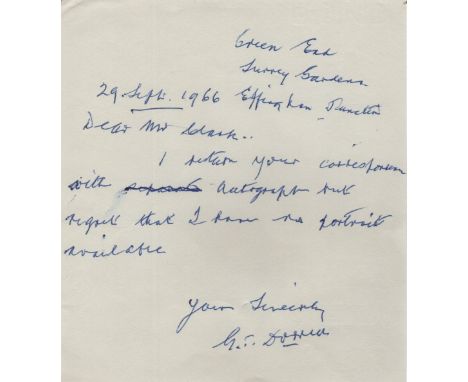 Green End
Surrey Gardens
29. Sept. 1966 Effingham Junction
Dear Mr
I return your
with autograph but
regret that I have no portrait
available
Yours Sincerely
G.